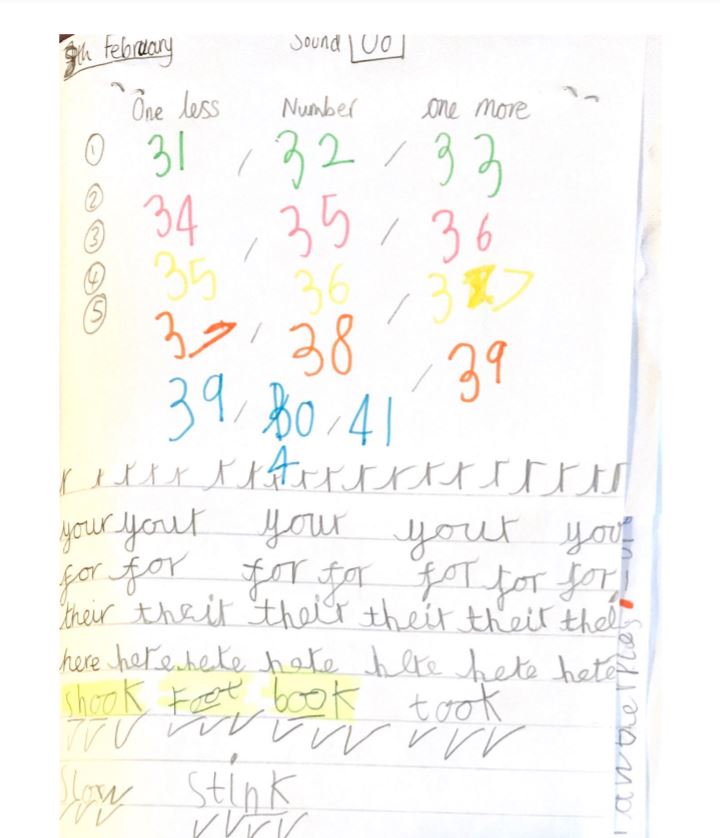 9th February Sound Uo
One less Number one more
① 31 , 32 , 33
② 34 , 35 , 36
③ 35 36 , 37
④ 37 , 38 , 39
⑤ 39 , 40 , 41
r r r r r r r r r r r r r r r r r r r
your your your your you
for for for for for for for
their their their their their thei
here here here here here here here
shook Foot book took
Slow Stink